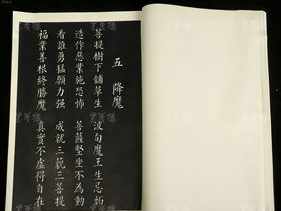 五　降魔
菩提樹下鋪草坐　波旬魔王生忌妒
造作惡業施恐怖　菩薩堅坐不為動
看誰勇猛願力强　成就三藐三菩提
福業善根終勝魔　真實不虛得自在